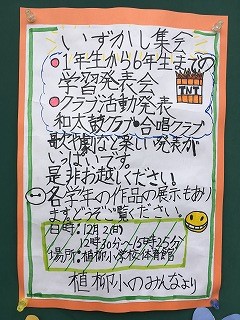 いいずかし集会
●1年生から6年生までの
学習発表会
●クラブ活動発表
和太鼓クラブ・合唱クラブ
歌や劇など楽しい発表が
いっぱいです。
是非お越しください!
各学年の作品の展示もあり
ますどうぞご覧ください。
日時:12月2(日)
12時30分〜15時25分
場所:植柳小学校体育館
植柳小のみんなより
TNT